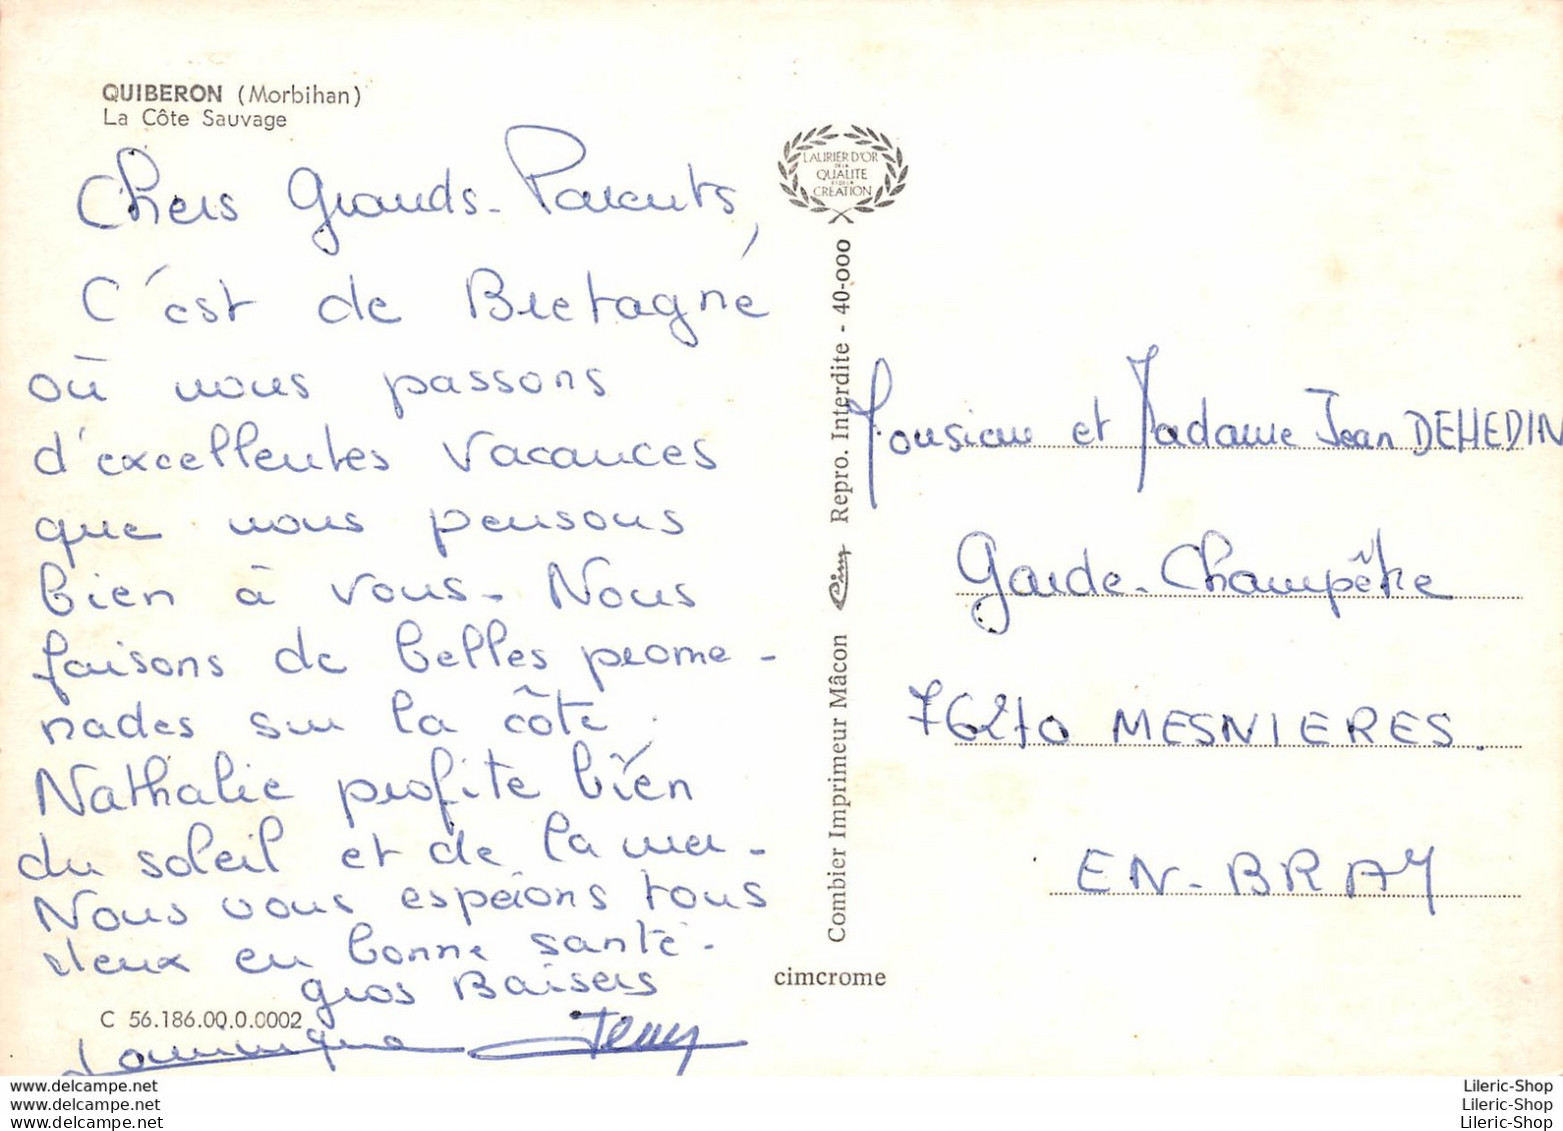 QUIBERON (Morbihan)
La Côte Sauvage
Chers Grands-Parents,
C'est de Bretagne
où nous passons
d'excellentes vacances
que nous pensons
bien à vous. Nous
faisons de belles prome-
nades sur la côte.
Nathalie profite bien
du soleil et de la mer.
Nous vous espérons tous
deux en bonne santé.
gros Baisers
C 56.186.00.0.0002
Dominique
LAURIER D'OR
DE LA
QUALITE
ET DE LA
CREATION
Combier Imprimeur Mâcon Cim Repro. Interdite - 40-000
cimcrome
Monsieur et Madame Jean DEHEDIN
Garde-Champêtre
76270 MESNIERES.
EN-BRAY
www.delcampe.net
www.delcampe.net
www.delcampe.net
Lileric-Shop
Lileric-Shop
Lileric-Shop